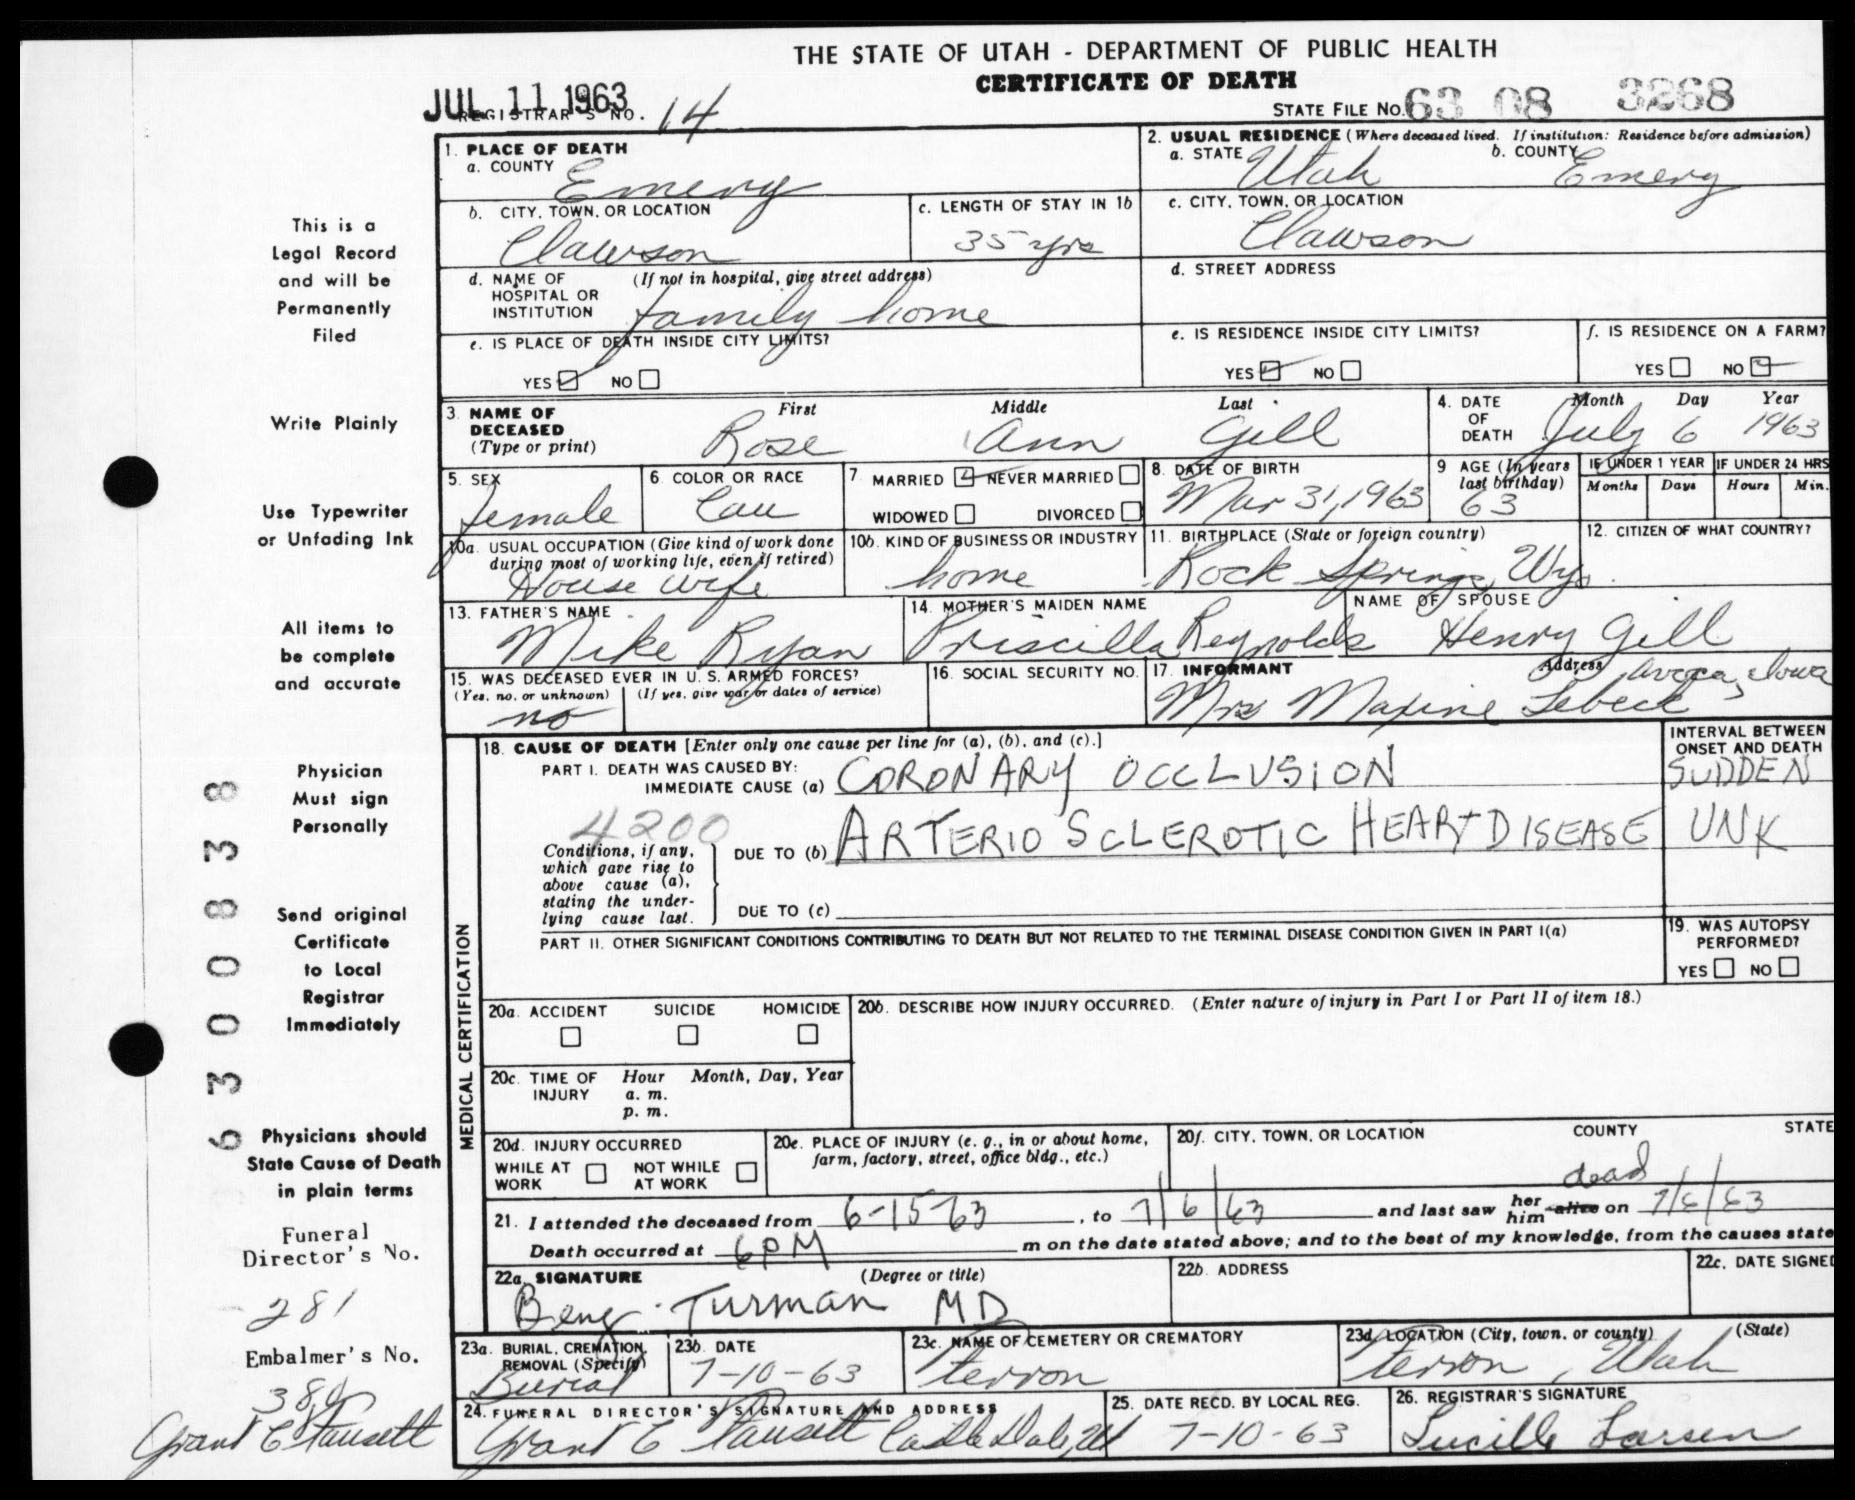 THE STATE OF UTAH - DEPARTMENT OF PUBLIC HEALTH
CERTIFICATE OF DEATH
JUL 11 1963
REGISTRAR'S NO. 14
STATE FILE NO. 63 08 3268
1. PLACE OF DEATH
a. COUNTY Emery
2. USUAL RESIDENCE (Where deceased lived. If institution: Residence before admission)
a. STATE Utah b. COUNTY Emery
b. CITY, TOWN, OR LOCATION Clawson
c. LENGTH OF STAY IN 1b 35 yrs
c. CITY, TOWN, OR LOCATION Clawson
d. NAME OF HOSPITAL OR INSTITUTION (If not in hospital, give street address) family home
d. STREET ADDRESS
e. IS PLACE OF DEATH INSIDE CITY LIMITS?
YES NO
e. IS RESIDENCE INSIDE CITY LIMITS?
YES NO
f. IS RESIDENCE ON A FARM?
YES NO
3. NAME OF DECEASED (Type or print) First Middle Last
Rose Ann Gill
4. DATE OF DEATH Month Day Year
July 6 1963
5. SEX female
6. COLOR OR RACE Cau
7. MARRIED NEVER MARRIED
WIDOWED DIVORCED
8. DATE OF BIRTH Mar 31, 1963
9 AGE (In years last birthday) 63
IF UNDER 1 YEAR Months Days
IF UNDER 24 HRS Hours Min.
10a. USUAL OCCUPATION (Give kind of work done during most of working life, even if retired) House wife
10b. KIND OF BUSINESS OR INDUSTRY home
11. BIRTHPLACE (State or foreign country) Rock Springs, Wyo.
12. CITIZEN OF WHAT COUNTRY?
13. FATHER'S NAME Mike Ryan
14. MOTHER'S MAIDEN NAME Priscilla Reynolds
NAME OF SPOUSE Henry Gill
15. WAS DECEASED EVER IN U. S. ARMED FORCES?
(Yes, no, or unknown) (If yes, give war or dates of service)
no
16. SOCIAL SECURITY NO.
17. INFORMANT Address Avoca, Iowa
Mrs Maxine Lebeck
MEDICAL CERTIFICATION
18. CAUSE OF DEATH [Enter only one cause per line for (a), (b), and (c).]
INTERVAL BETWEEN ONSET AND DEATH
PART I. DEATH WAS CAUSED BY:
IMMEDIATE CAUSE (a) CORONARY OCCLUSION SUDDEN
4200
Conditions, if any, which gave rise to above cause (a), stating the underlying cause last.
DUE TO (b) ARTERIO SCLEROTIC HEART DISEASE UNK
DUE TO (c)
PART II. OTHER SIGNIFICANT CONDITIONS CONTRIBUTING TO DEATH BUT NOT RELATED TO THE TERMINAL DISEASE CONDITION GIVEN IN PART I(a)
19. WAS AUTOPSY PERFORMED?
YES NO
20a. ACCIDENT SUICIDE HOMICIDE
20b. DESCRIBE HOW INJURY OCCURRED. (Enter nature of injury in Part I or Part II of item 18.)
20c. TIME OF INJURY Hour Month, Day, Year
a. m.
p. m.
20d. INJURY OCCURRED
WHILE AT WORK NOT WHILE AT WORK
20e. PLACE OF INJURY (e. g., in or about home, farm, factory, street, office bldg., etc.)
20f. CITY, TOWN, OR LOCATION COUNTY STATE
dead
21. I attended the deceased from 6-15-63, to 7/6/63 and last saw her him alive on 7/6/63
Death occurred at 6PM m on the date stated above; and to the best of my knowledge, from the causes state
22a. SIGNATURE (Degree or title)
Turman MD
22b. ADDRESS
22c. DATE SIGNED
23a. BURIAL, CREMATION, REMOVAL (Specify) Burial
23b. DATE 7-10-63
23c. NAME OF CEMETERY OR CREMATORY Ferron
23d. LOCATION (City, town, or county) (State)
Ferron, Utah
24. FUNERAL DIRECTOR'S SIGNATURE AND ADDRESS
Grant C Fausett Castle Dale, Ut
25. DATE RECD. BY LOCAL REG. 7-10-63
26. REGISTRAR'S SIGNATURE
Lucille Larsen
This is a
Legal Record
and will be
Permanently
Filed
Write Plainly
Use Typewriter
or Unfading Ink
All items to
be complete
and accurate
Physician
Must sign
Personally
Send original
Certificate
to Local
Registrar
Immediately
Physicians should
State Cause of Death
in plain terms
Funeral
Director's No.
281
Embalmer's No.
Grant C Fausett
63008338